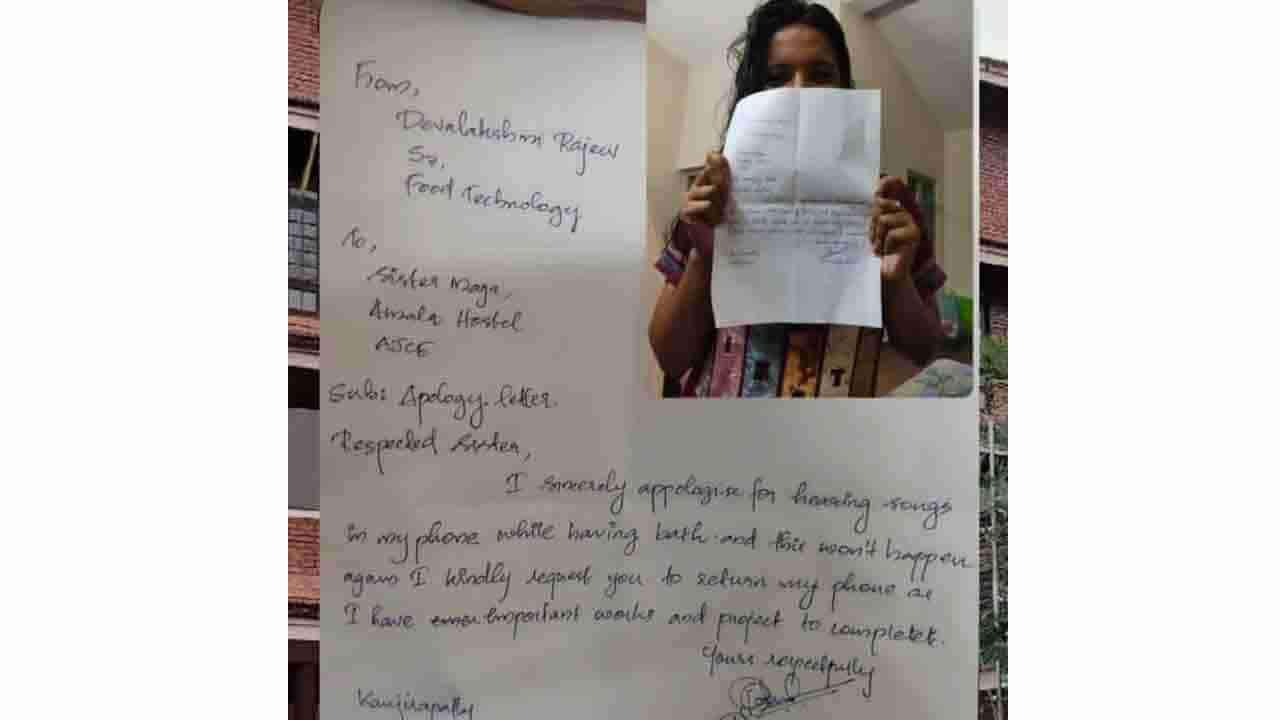 From,
Devalakshmi Rajeev
S7,
Food Technology
To,
Sister Maya,
Amala Hostel
AJCE
Sub: Apology letter.
Respected Sister,
I sincerely appologise for hearing songs
in my phone while having bath and this won't happen
again I kindly request you to return my phone as
I have important works and project to complete.
Yours respectfully
Kanjirapally